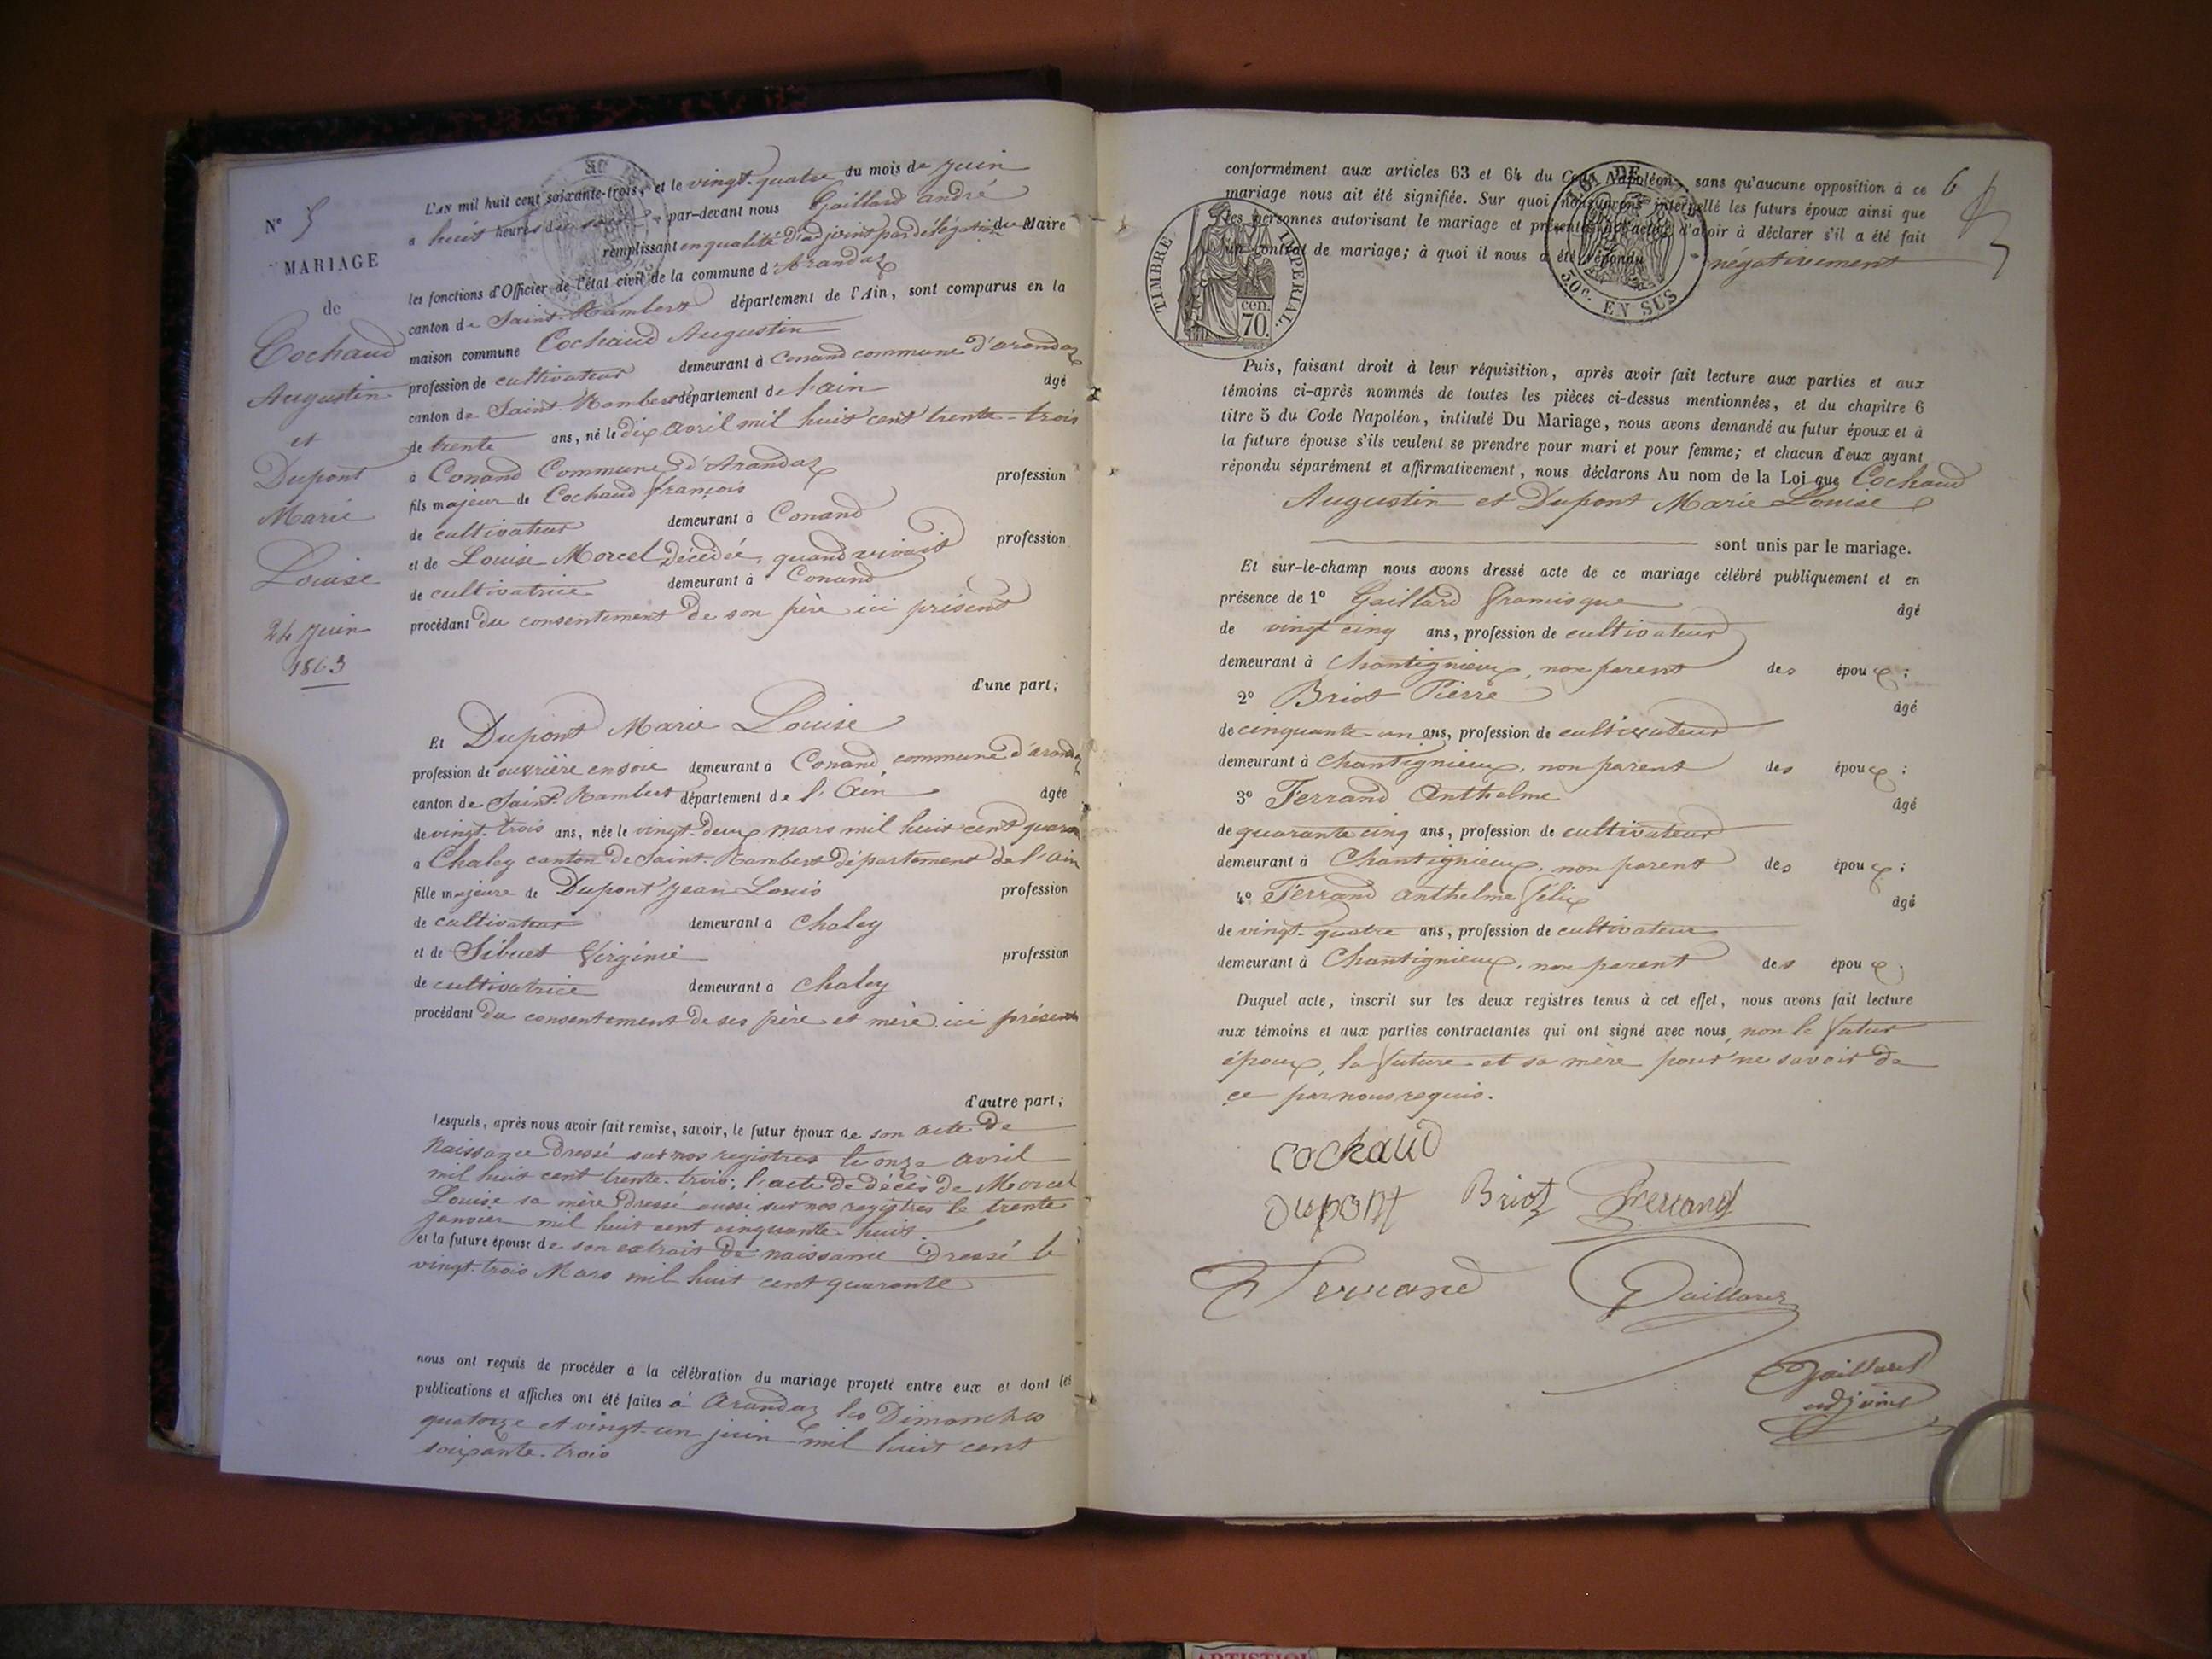 N° 5
MARIAGE
de
Cochaud
Augustin
et
Dupont
Marie
Louise
24 Juin
1863
L'AN mil huit cent soixante-trois, et le vingt-quatre du mois de Juin
a huit heures du par-devant nous Gaillard andré
remplissant en qualité d'adjoint par délégation du Maire
les fonctions d'Officier de l'état civil de la commune d'Arandaz
canton de Saint-Rambert département de l'Ain, sont comparus en la
maison commune Cochaud Augustin
profession de cultivateur demeurant à Conand commune d'arandaz
canton de Saint-Rambert département de l'ain âgé
de trente ans, né le dix avril mil huit cent trente-trois
a Conand Commune d'Arandaz
fils majeur de Cochaud françois profession
de cultivateur demeurant à Conand
et de Louise Morcel Décédée, quand vivait profession
de cultivatrice demeurant à Conand
procédant du consentement de son père ici présent
d'une part;
Et Dupont Marie Louise
profession de ouvrière en soie demeurant à Conand, commune d'arandaz
canton de Saint-Rambert département de l'Ain âgée
de vingt-trois ans, née le vingt deux mars mil huit cent quaran
a Chaley canton de Saint-Rambert département de l'ain
fille majeure de Dupont Jean Louis profession
de cultivateur demeurant a Chaley
et de Sibuet Virginie profession
de cultivatrice demeurant à Chaley
procédant du consentement de ses père et mère ici présents
d'autre part;
Lesquels, après nous avoir fait remise, savoir, le futur époux de son acte de
Naissance dressé sur nos registres le onze avril
mil huit cent trente-trois; l'acte de décès de Morcel
Louise sa mère dressé aussi sur nos registres le trente
janvier mil huit cent cinquante huit.
et la future épouse de son extrait de naissance dressé le
vingt-trois Mars mil huit cent quarante
nous ont requis de procéder à la célébration du mariage projeté entre eux et dont les
publications et affiches ont été faites à Arandaz les Dimanches
quatorze et vingt-un juin mil huit cent
soixante-trois
6
conformément aux articles 63 et 64 du Code Napoléon, sans qu'aucune opposition à ce
mariage nous ait été signifiée. Sur quoi nous avons interpellé les futurs époux ainsi que
les personnes autorisant le mariage et présentes d'avoir à déclarer s'il a été fait
un contrat de mariage; à quoi il nous a été répondu négativement
TIMBRE IMPERIAL.
cen.
70.
LOI DE
50c. EN SUS
Puis, faisant droit à leur réquisition, après avoir fait lecture aux parties et aux
témoins ci-après nommés de toutes les pièces ci-dessus mentionnées, et du chapitre 6
titre 5 du Code Napoléon, intitulé Du Mariage, nous avons demandé au futur époux et à
la future épouse s'ils veulent se prendre pour mari et pour femme; et chacun d'eux ayant
répondu séparément et affirmativement, nous déclarons Au nom de la Loi que Cochaud
Augustin et Dupont Marie Louise
sont unis par le mariage.
Et sur-le-champ nous avons dressé acte de ce mariage célébré publiquement et en
présence de 1° Gaillard âgé
de vingt cinq ans, profession de cultivateur
demeurant à Chantignieux, non parent des époux;
2° Briot Pierre âgé
de cinquante-un ans, profession de cultivateur
demeurant à Chantignieux, non parent des époux;
3° Ferrand Anthelme âgé
de quarante cinq ans, profession de cultivateur
demeurant à Chantignieux, non parent des époux;
4° Ferrand Anthelme félix âgé
de vingt-quatre ans, profession de cultivateur
demeurant à Chantignieux, non parent des époux.
Duquel acte, inscrit sur les deux registres tenus à cet effet, nous avons fait lecture
aux témoins et aux parties contractantes qui ont signé avec nous, non le futur
époux, la future et sa mère pour ne savoir de
ce par nous requis.
cochaud
dupont Briot Ferrand
Ferrand Gaillard
Gaillard
adjoint